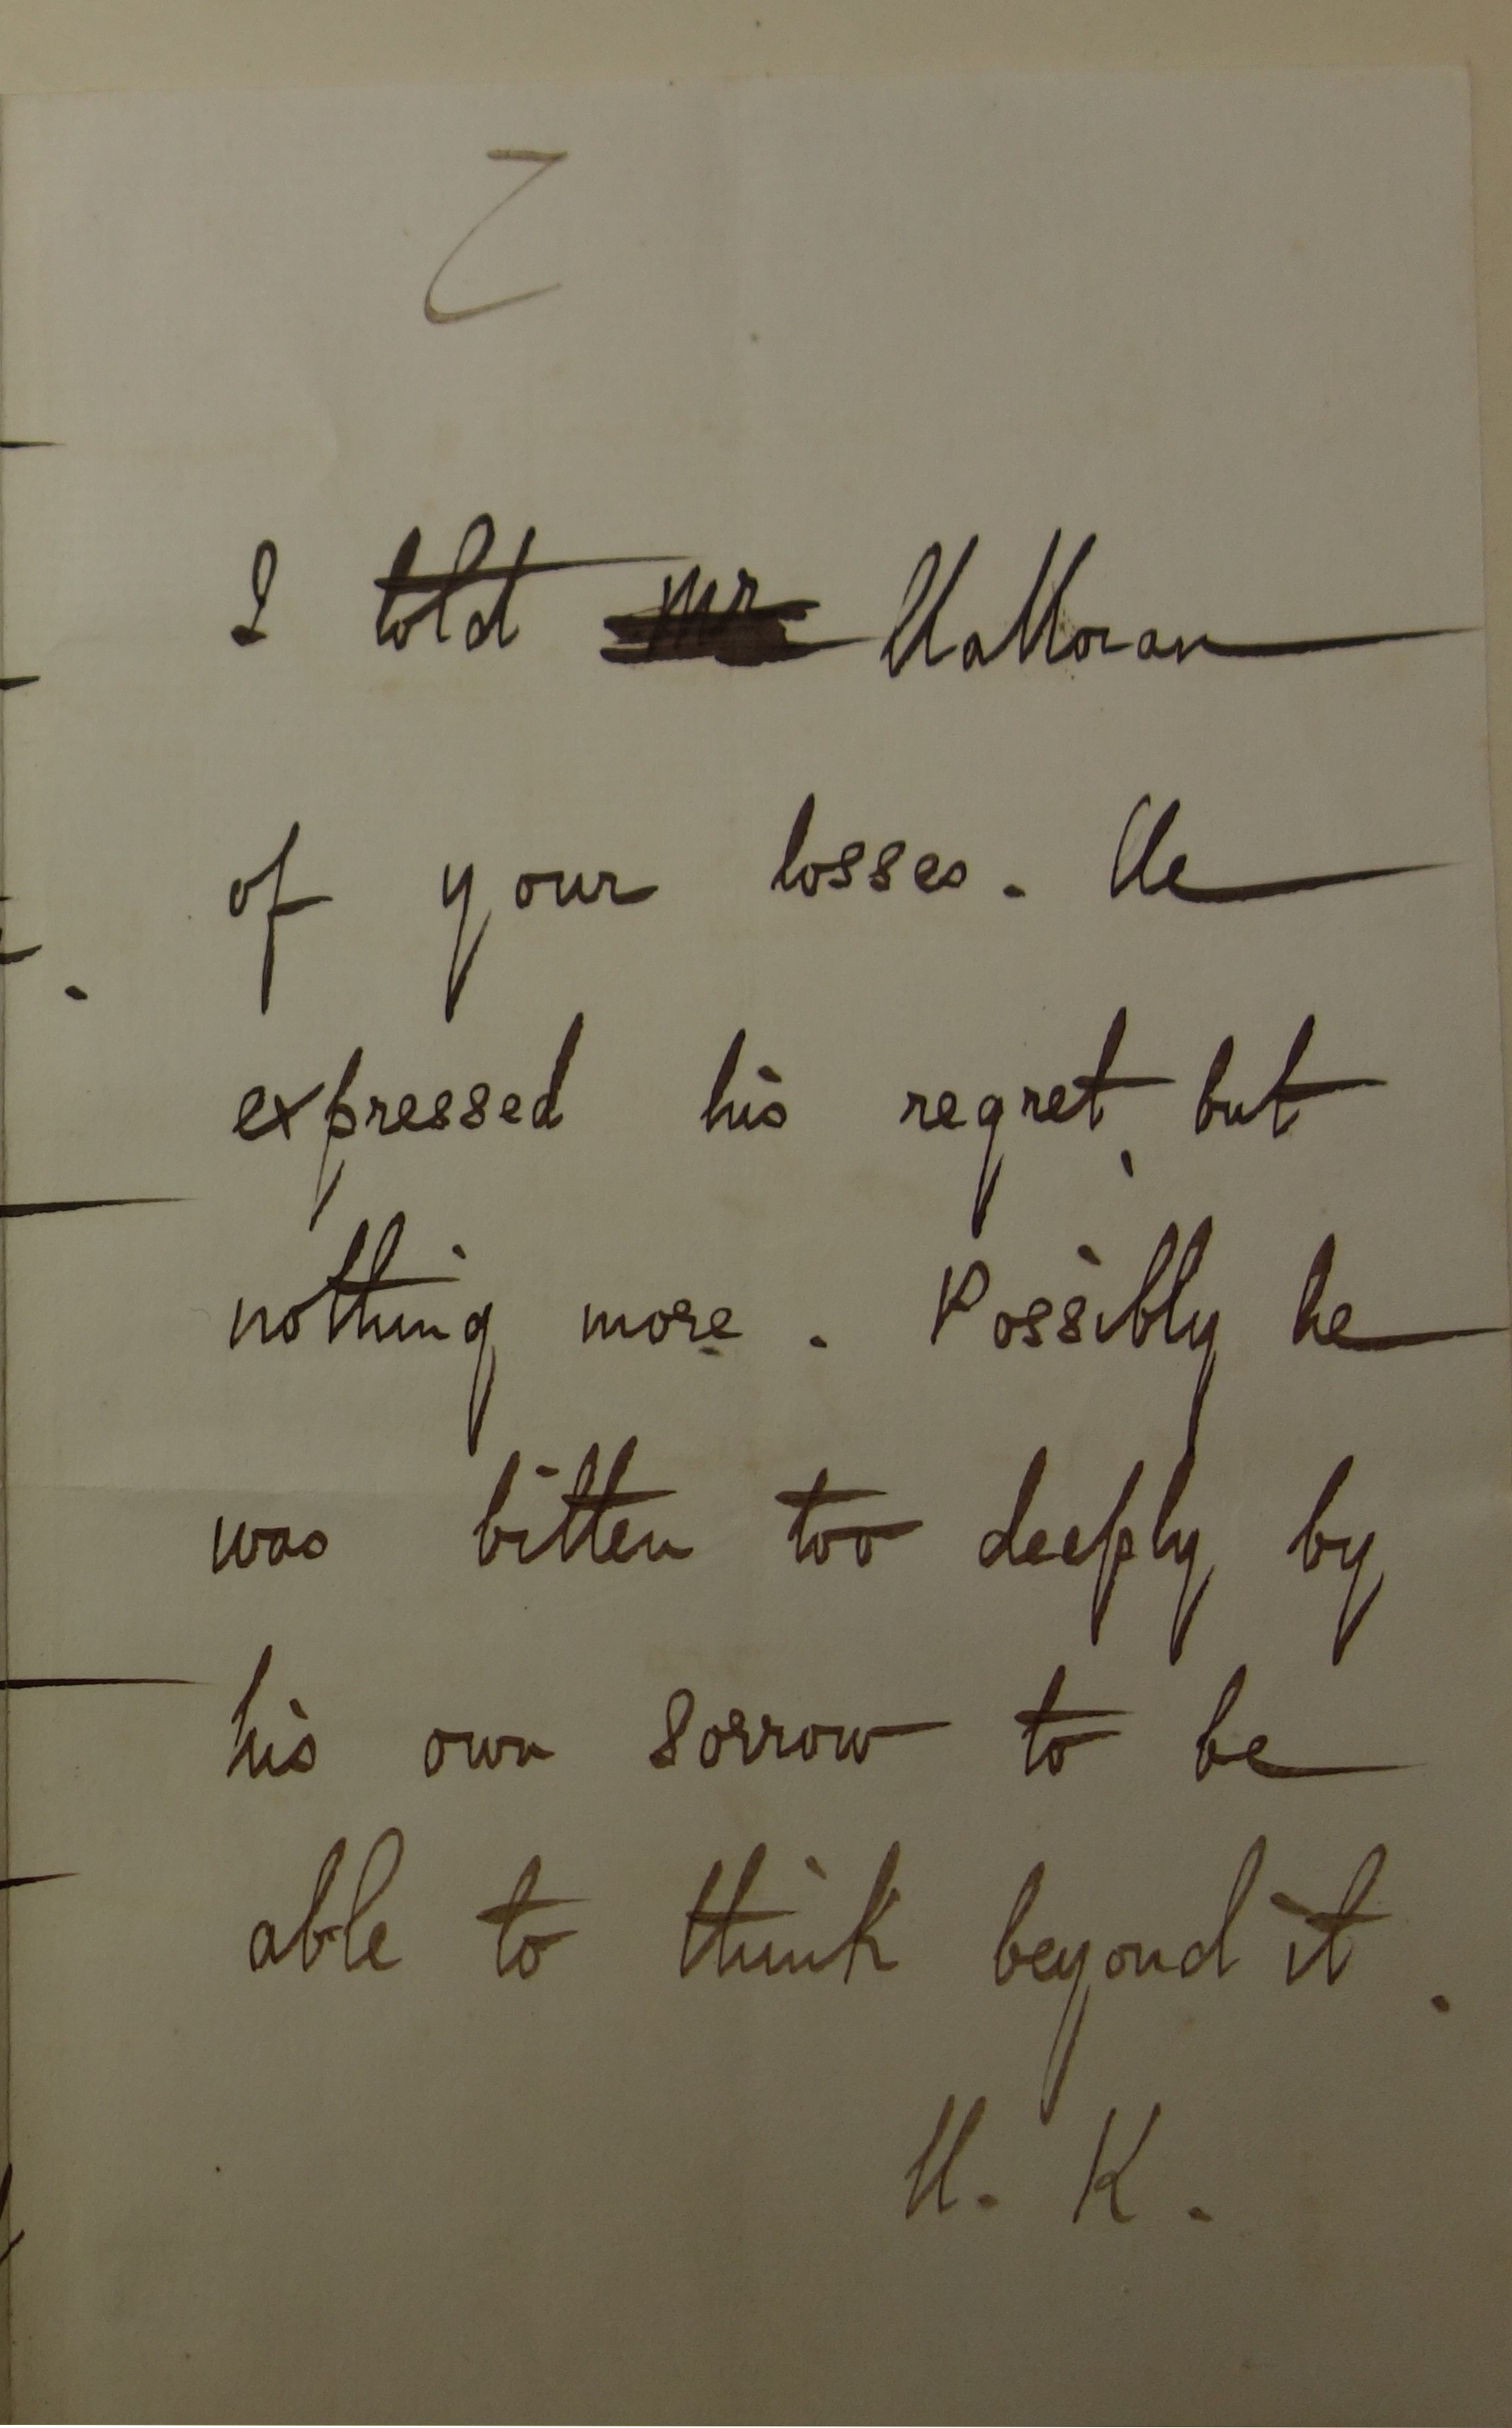 2
I told Mr Halloran
of your losses. He
expressed his regret, but
nothing more. Possibly he
was bitten too deeply by
his own sorrow to be
able to think beyond it.
H. K.